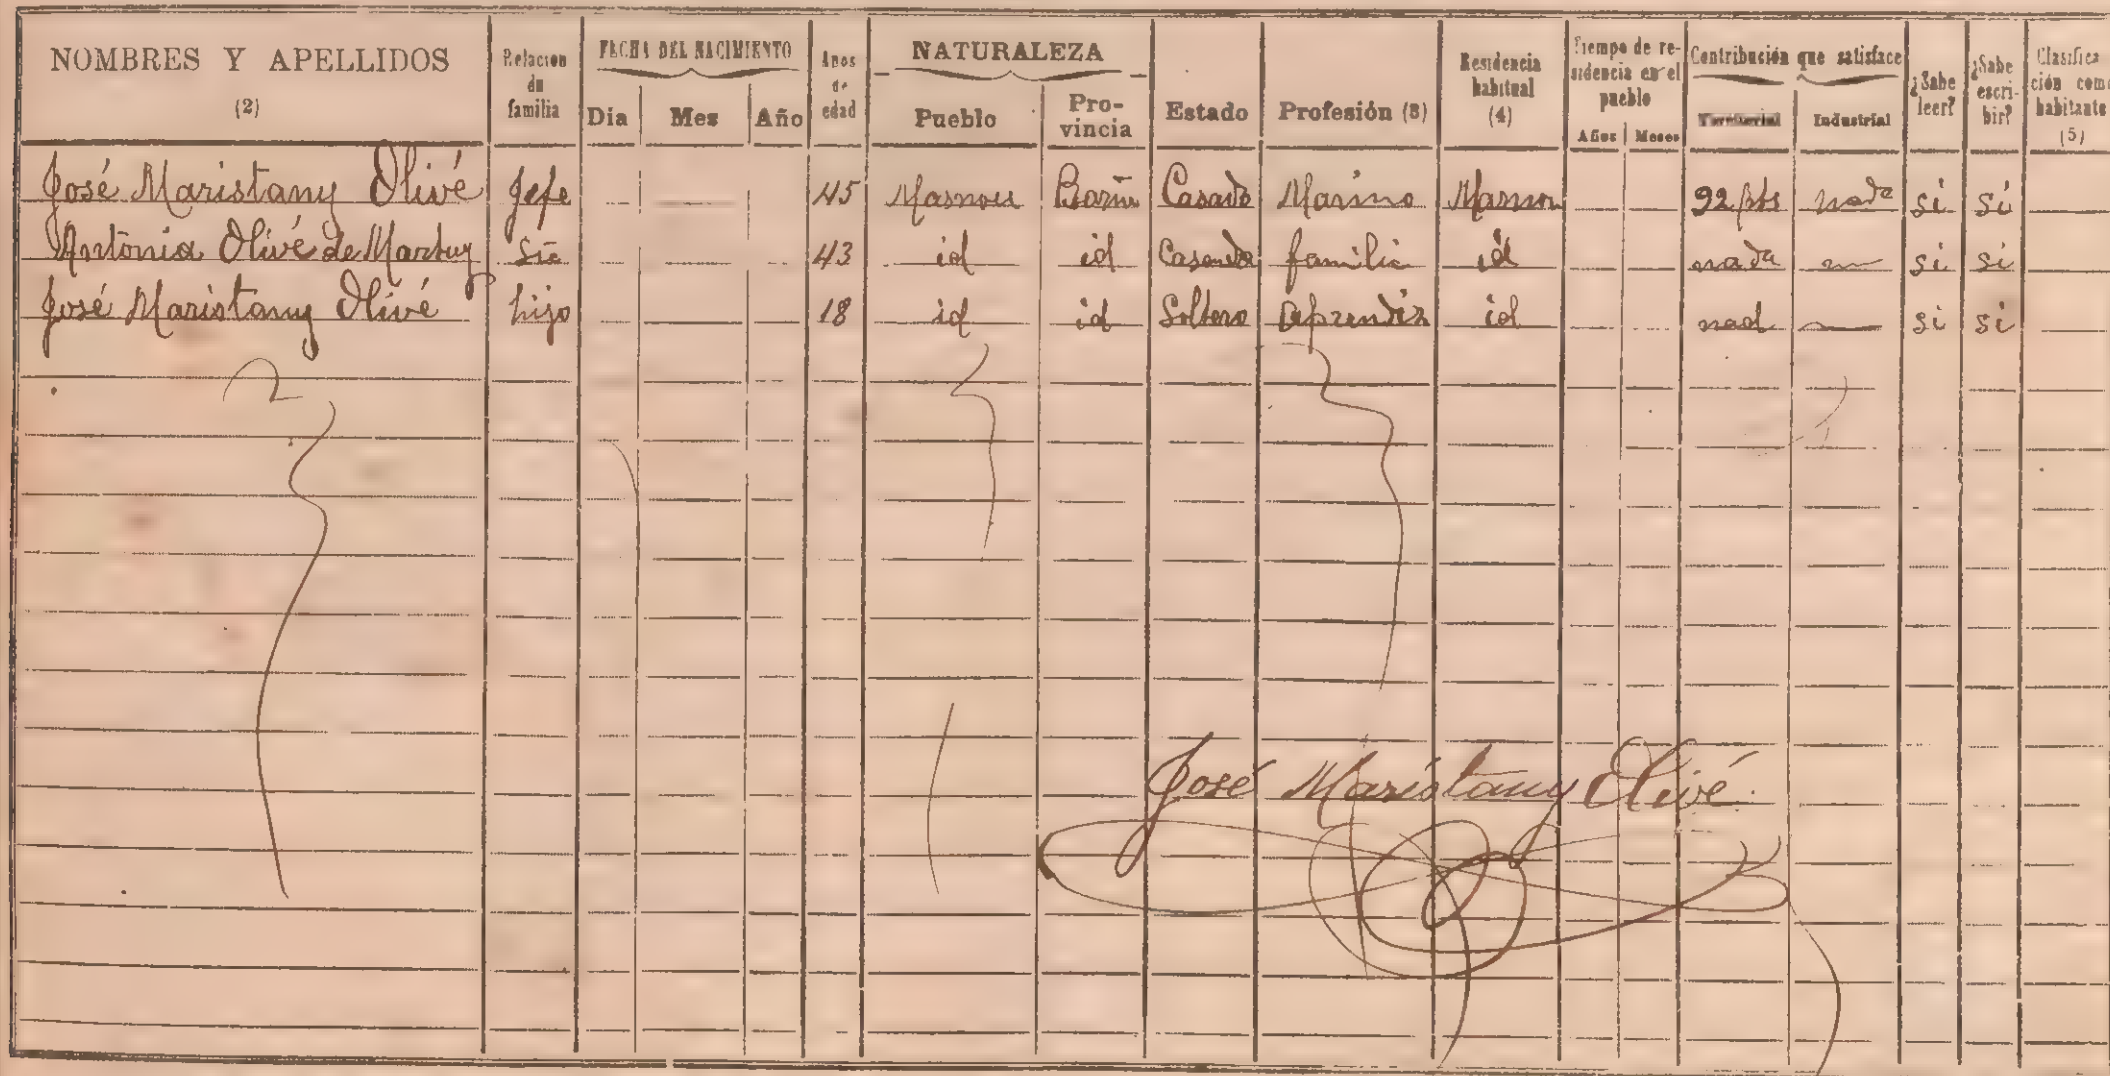 NOMBRES Y APELLIDOS (2) Relación de familia FECHA DEL NACIMIENTO Dia Mes Año Años de edad NATURALEZA Pueblo Pro-vincia Estado Profesión (3) Residencia habitual (4) Tiempo de re-sidencia en el pueblo Años Meses Contribución que satisface Territorial Industrial ¿Sabe leer? ¿Sabe escri-bir? Clasifica ción como habitante (5)
José Maristany Olivé Jefe 45 Masnou Casado Marino Masnou 92 pts nada si si
Antonia Olivé de 43 id id Casada familia id nada si si
José Maristany Olivé hijo 18 id id Soltero Aprendiz id nad si si
José Maristany Olivé.